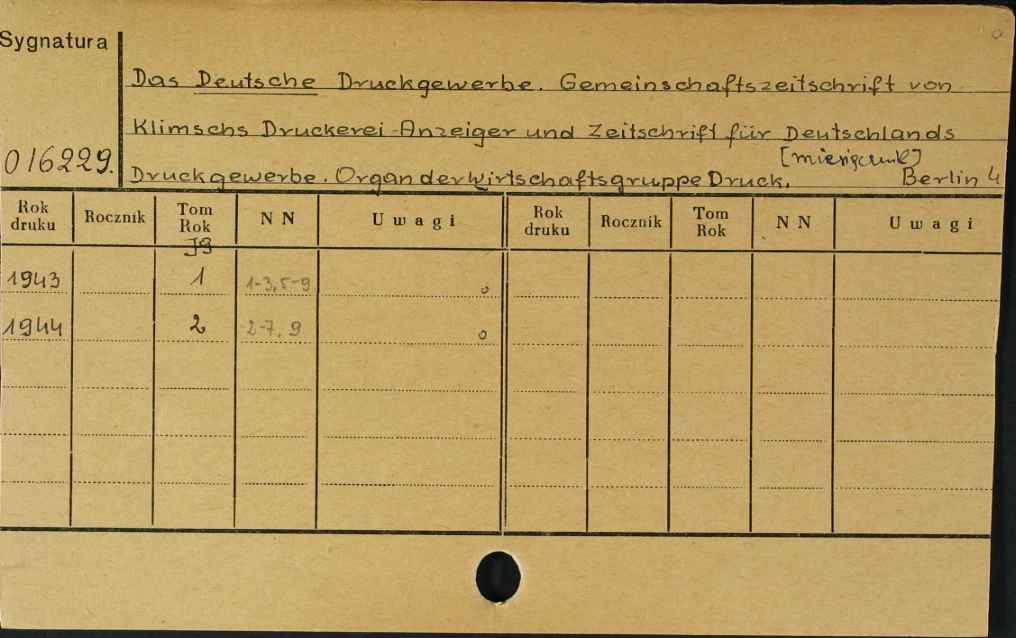 Sygnatura
Das Deutsche Druckgewerbe. Gemeinschaftszeitschrift von
Klimschs Druckerei-Anzeiger und Zeitschrift für Deutschlands
[miesięcznik]
016229. Druckgewerbe. Organ der Wirtschaftsgruppe Druck. Berlin 4
Rok druku Rocznik Tom Rok N N Uwagi Rok druku Rocznik Tom Rok N N Uwagi
Jg
1943 1 1-3, 5-9
1944 2 2-7, 9